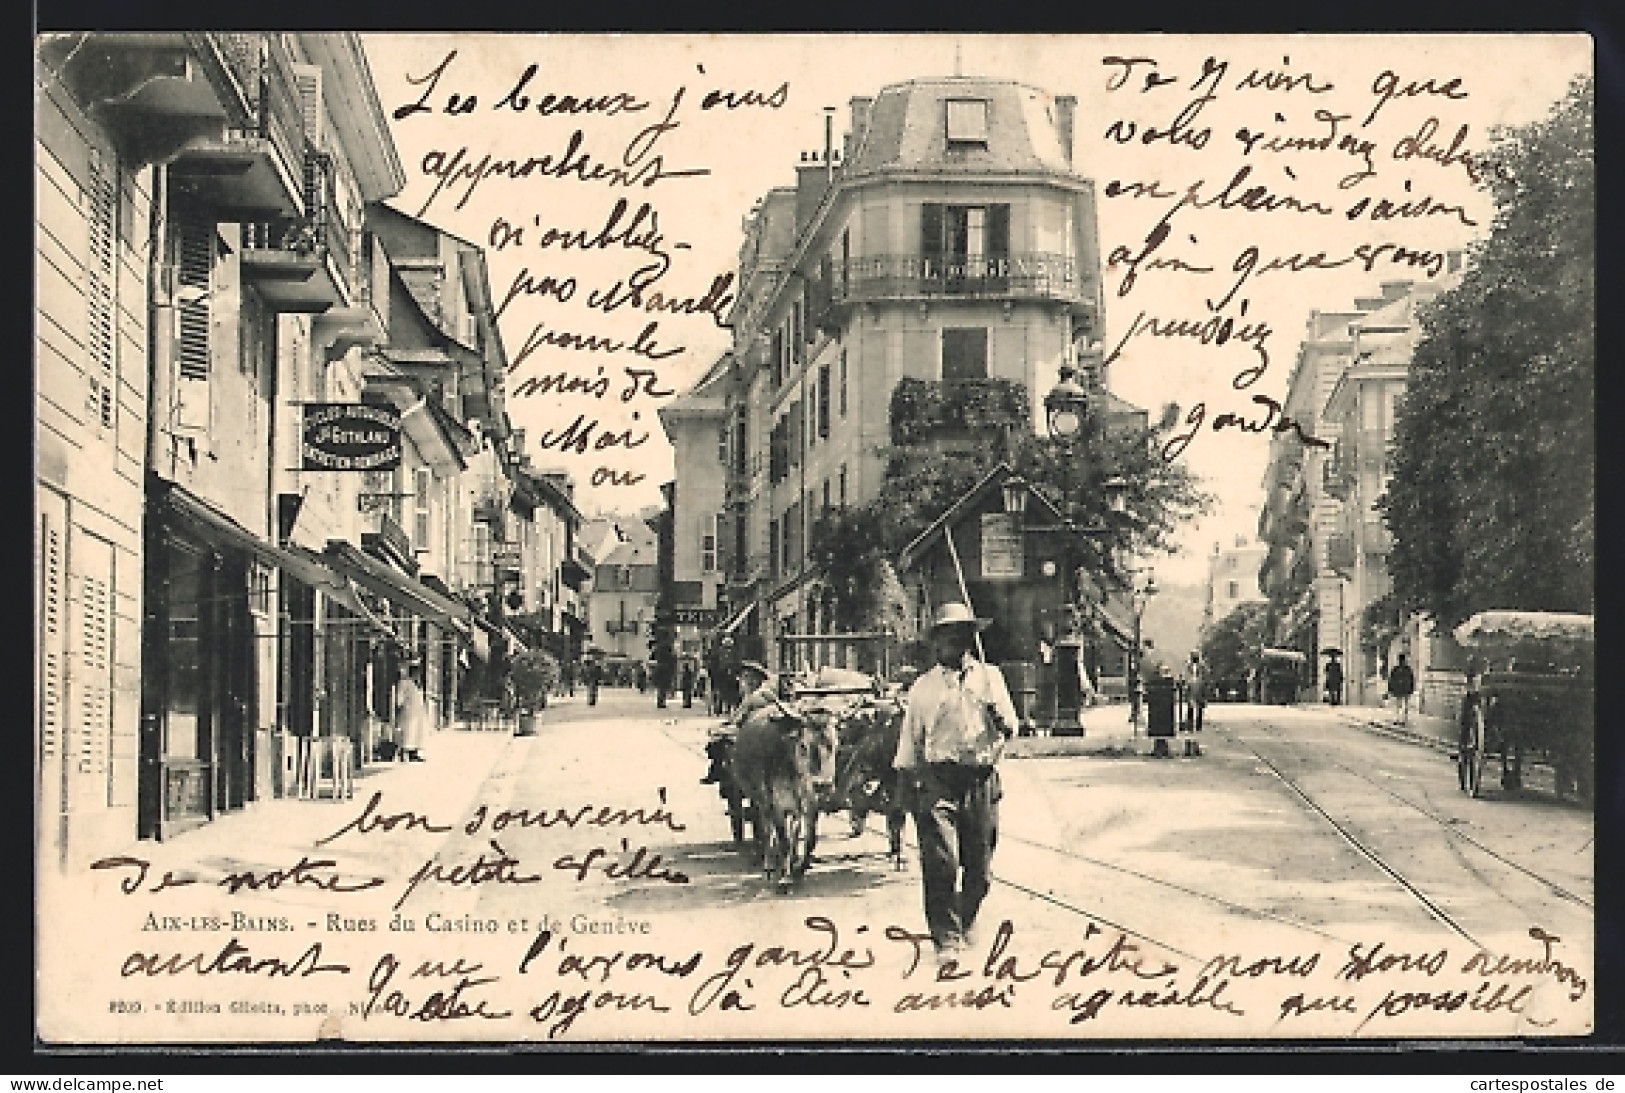 Les beaux jours
approchent
n'oubliez-
pas
pour le
mois de
Mai
ou
de Juin que
vous viendrez
en plaim saison
afin que vous
puissiez
garder
bon souvenir
de notre petite ville
AIX-LES-BAINS. - Rues du Casino et de Genève
autant que l'avons gardé de la vôtre nous vous rendrons
votre séjour à Aix aussi agréable que possible
8209. - Édition Giletta, phot. Nice
CYCLES-AUTOMOBILES
Jh GUTHLAND
ENTRETIEN-GARAGE
cartespostales de